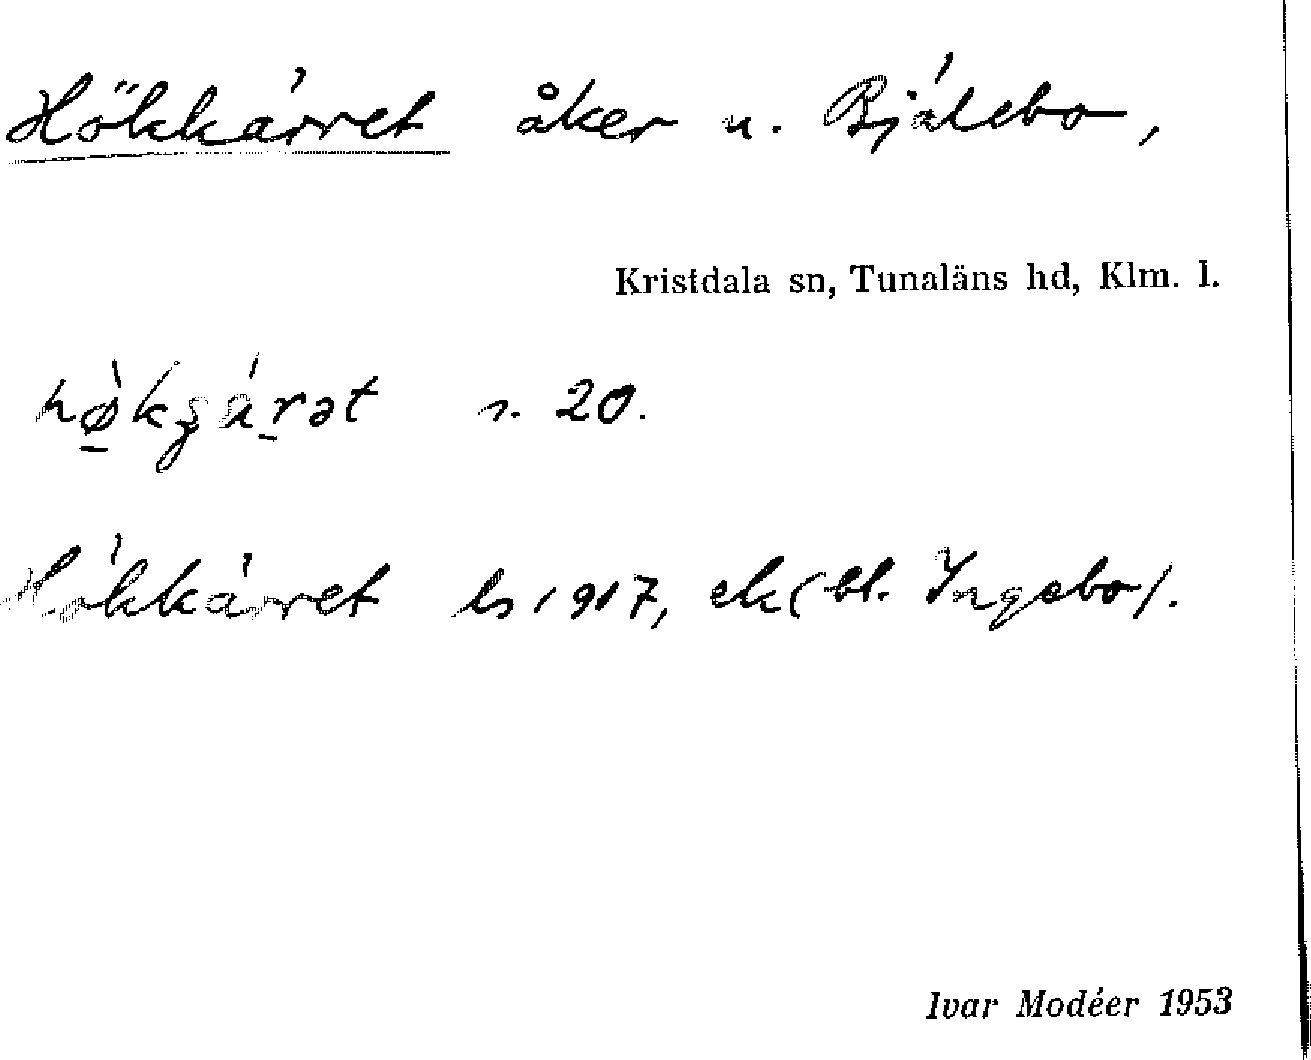 Hökkärret åker u. Bjälebo,
Kristdala sn, Tunaläns hd, Klm. l.
r. 20.
Hökkärret ls 1917, ek (bl. Ingebo).
Ivar Modéer 1953